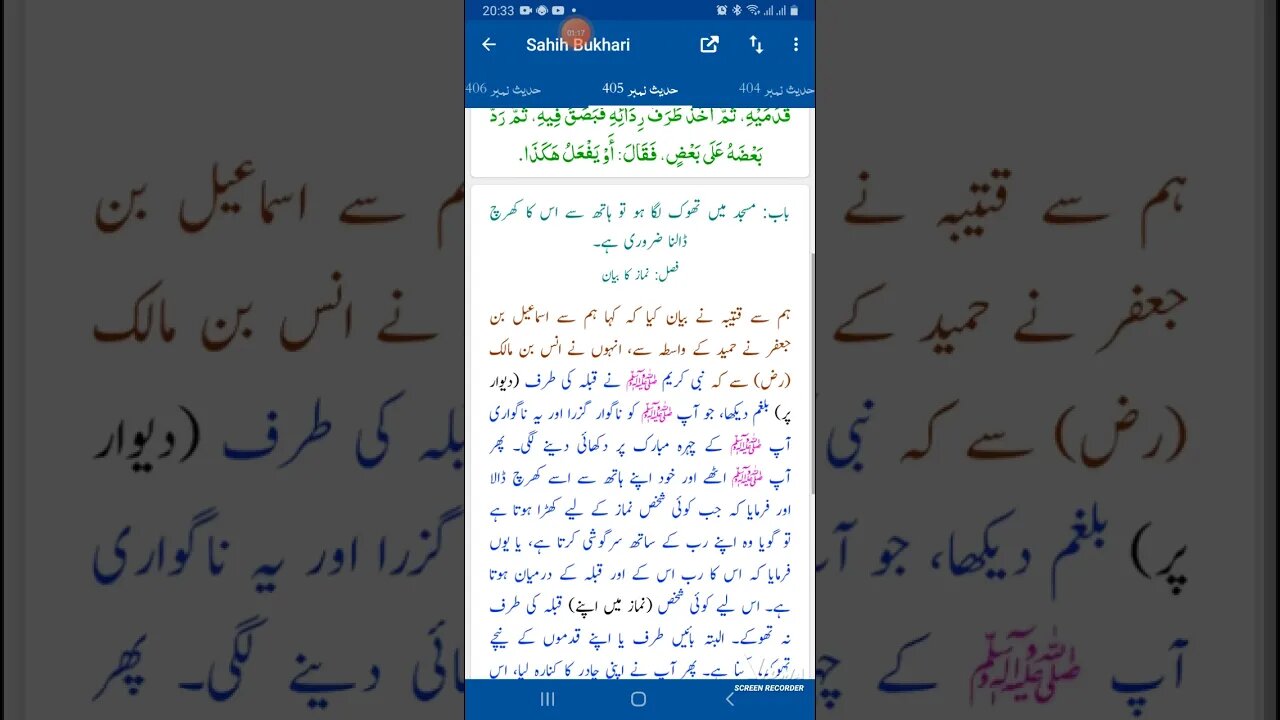 20:33
01:17
Sahih Bukhari
حدیث نمبر 404
حدیث نمبر 405
حدیث نمبر 406
قَدَمَيْهِ، ثُمَّ أَخَذَ طَرَفَ رِدَائِهِ فَبَصَقَ فِيهِ، ثُمَّ رَدَّ
بَعْضَهُ عَلَى بَعْضٍ، فَقَالَ: أَوْ يَفْعَلُ هَكَذَا.
باب: مسجد میں تھوک لگا ہو تو ہاتھ سے اس کا کھرچ
ڈالنا ضروری ہے۔
فصل: نماز کا بیان
ہم سے قتیبہ نے بیان کیا کہ کہا ہم سے اسماعیل بن
جعفر نے حمید کے واسطہ سے، انہوں نے انس بن مالک
(رض) سے کہ نبی کریم ﷺ نے قبلہ کی طرف (دیوار
پر) بلغم دیکھا، جو آپ ﷺ کو ناگوار گزرا اور یہ ناگواری
آپ ﷺ کے چہرہ مبارک پر دکھائی دینے لگی۔ پھر
آپ ﷺ اٹھے اور خود اپنے ہاتھ سے اسے کھرچ ڈالا
اور فرمایا کہ جب کوئی شخص نماز کے لیے کھڑا ہوتا ہے
تو گویا وہ اپنے رب کے ساتھ سرگوشی کرتا ہے، یا یوں
فرمایا کہ اس کا رب اس کے اور قبلہ کے درمیان ہوتا
ہے۔ اس لیے کوئی شخص (نماز میں اپنے) قبلہ کی طرف
نہ تھوکے۔ البتہ بائیں طرف یا اپنے قدموں کے نیچے
ہے۔ پھر آپ نے اپنی چادر کا کنارہ لیا، اس
SCREEN RECORDER